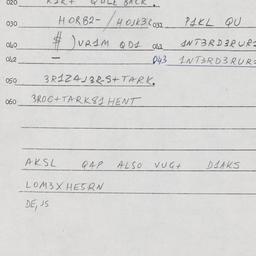 030 HORB2- / HOJK3R 031 P1KL QU
040 # ) VR1M QD1 041 1NT3RD3RUR
042 043 1NT3RD3RUR
050 3R1Z4J3R-S+TARK.
060 3ROC+TARK81HENT
AKSL QAP ALSO VUG+ D1AKS
LOM3XHE5RN
DE, JS